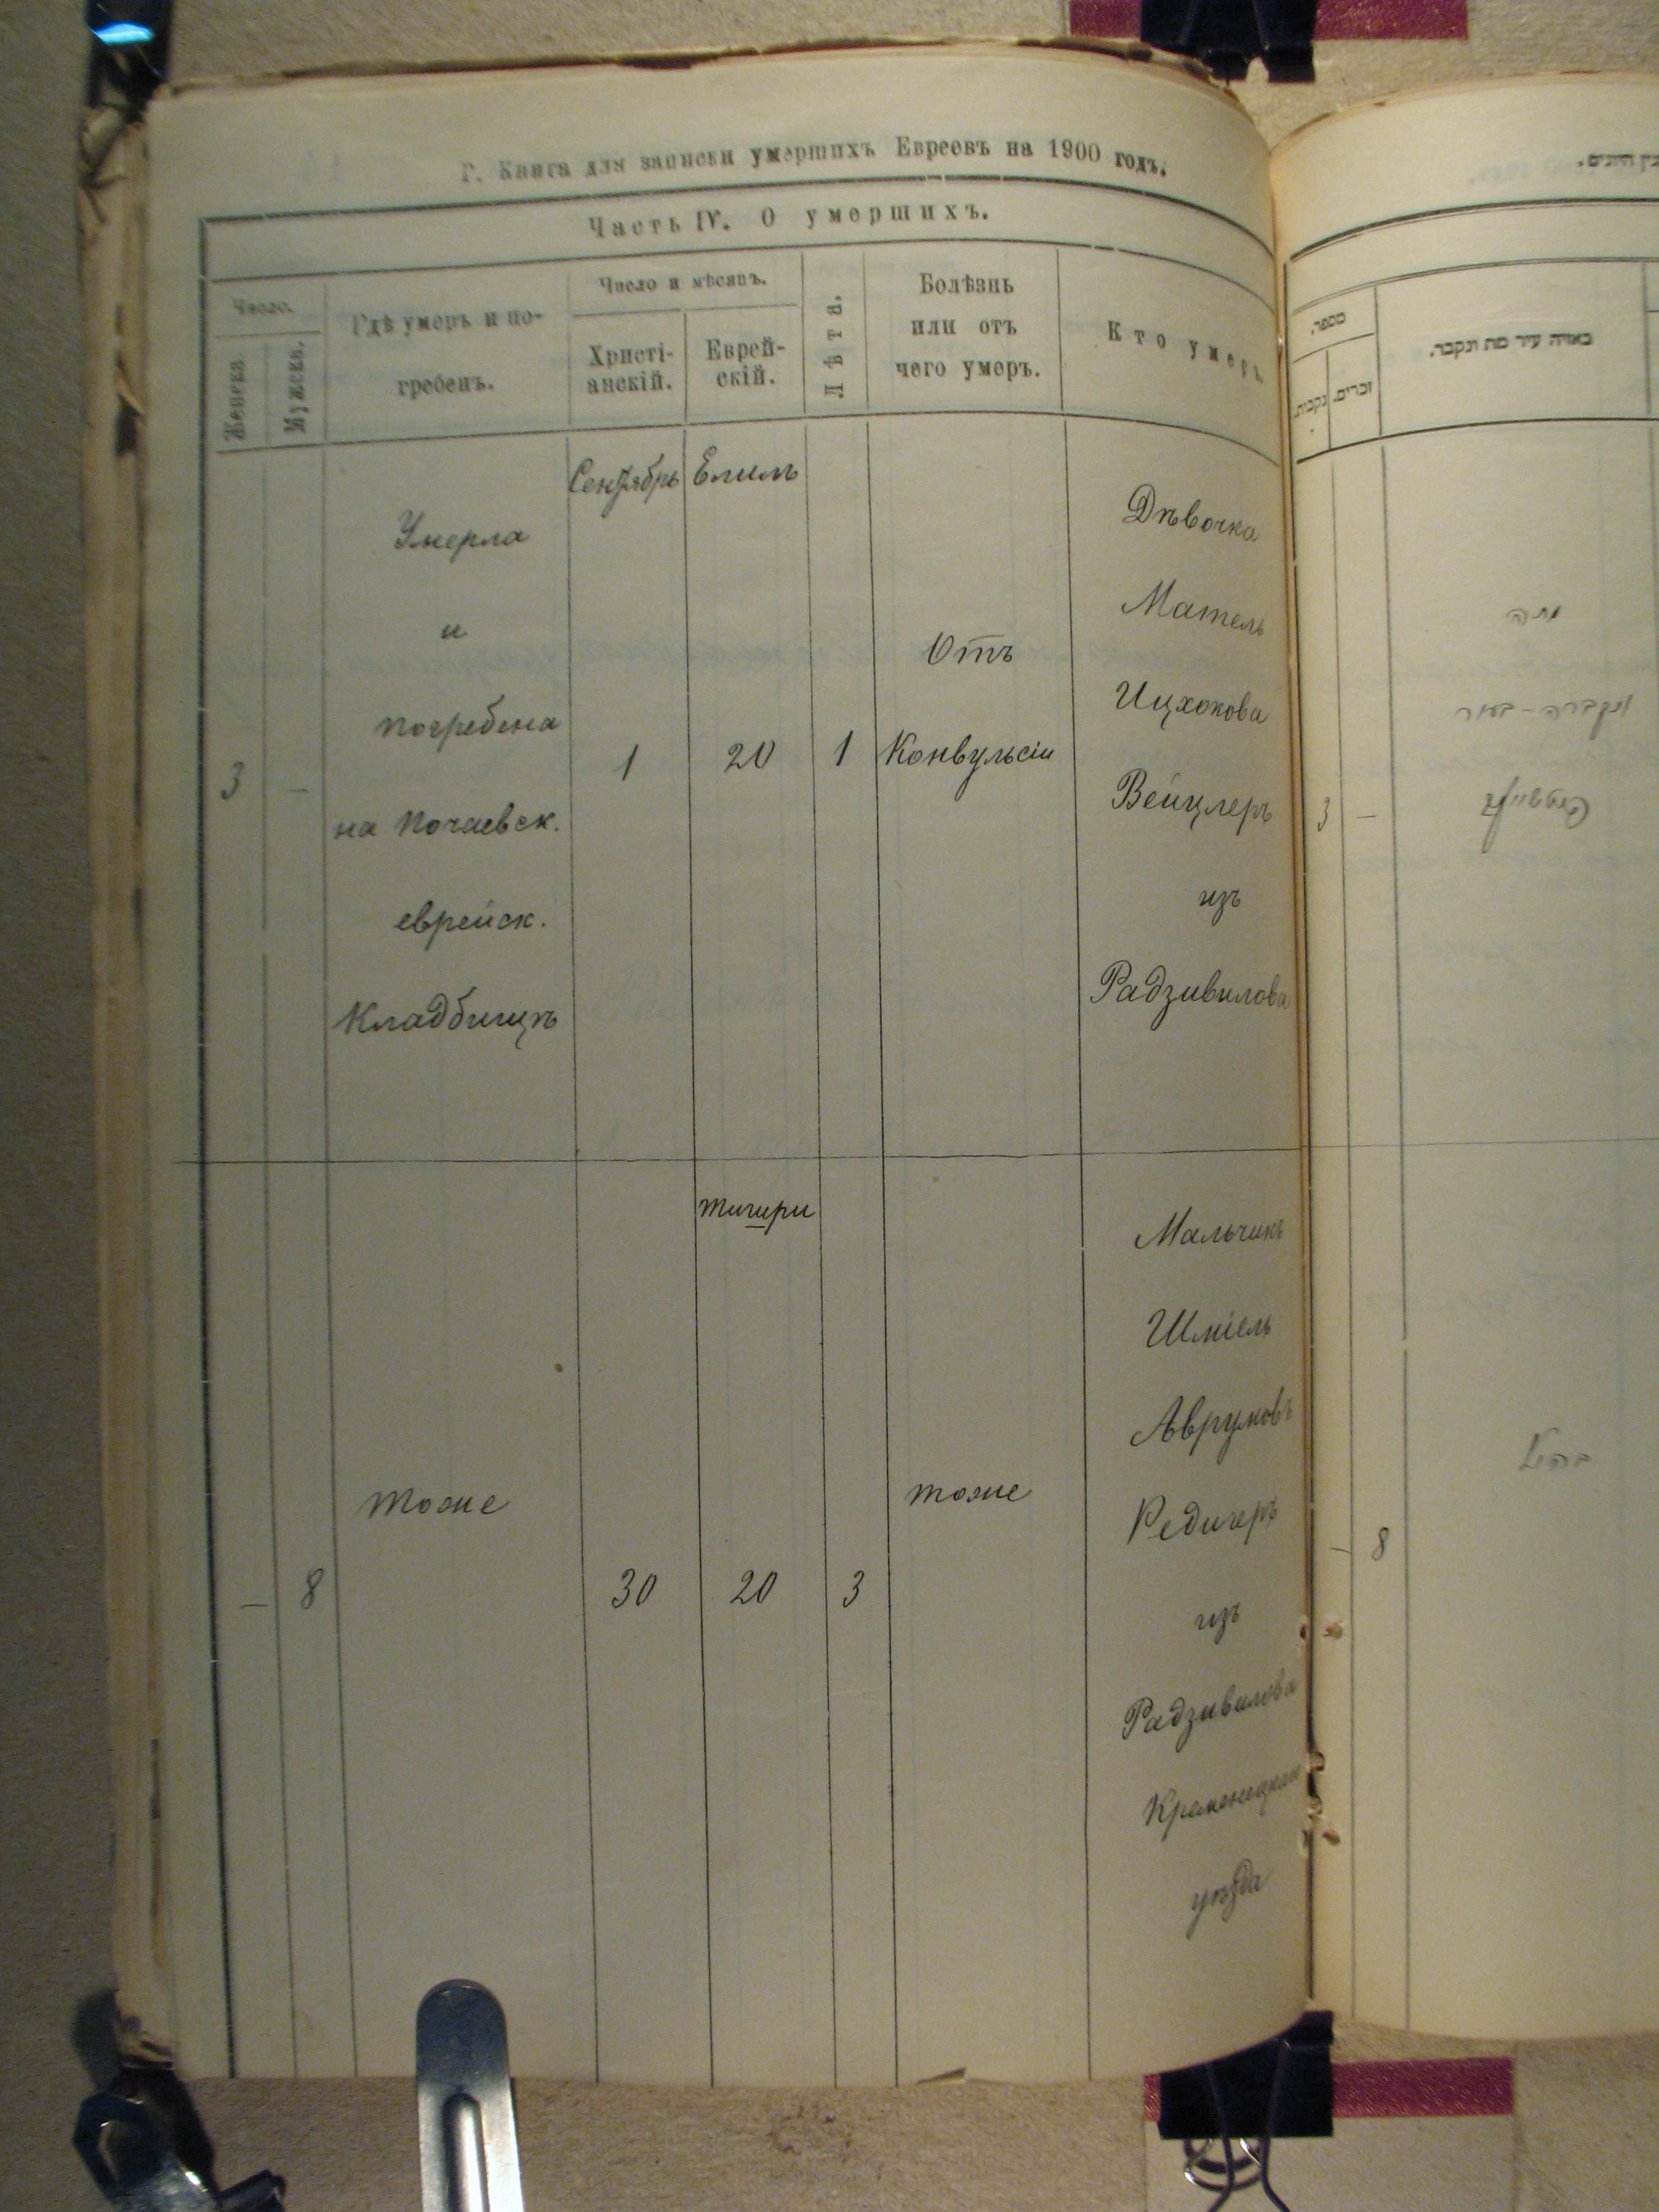 Г. Книга для записки умершихъ Евреевъ на 1900 годъ.
Часть IV. О умершихъ.
Число.
Женска
Мужеска.
Гдѣ умеръ и по-
гребенъ.
Число и мѣсяцъ.
Христі-
анскій.
Еврей-
скій.
Лѣта.
Болѣзнь
или отъ
чего умеръ.
Кто умеръ.
Сентябрь
Елилъ
3
–
Умерла
и
погребена
на Почаевск.
еврейск.
Кладбищѣ
1
20
1
Отъ
Конвульсіи
Дѣвочка
Мотель
Ицхокова
Вейцлеръ
изъ
Радзивилова
тишри
–
8
тоже
30
20
3
тоже
Мальчикъ
Шміель
Авруковъ
Редигеръ
изъ
Радзивилова
Кременецкаго
уѣзда
מספר.
נקבות.
זכרים.
באיזה עיר מת ונקבר.
3
–
מתה
ונקברה - בעיר
–
8